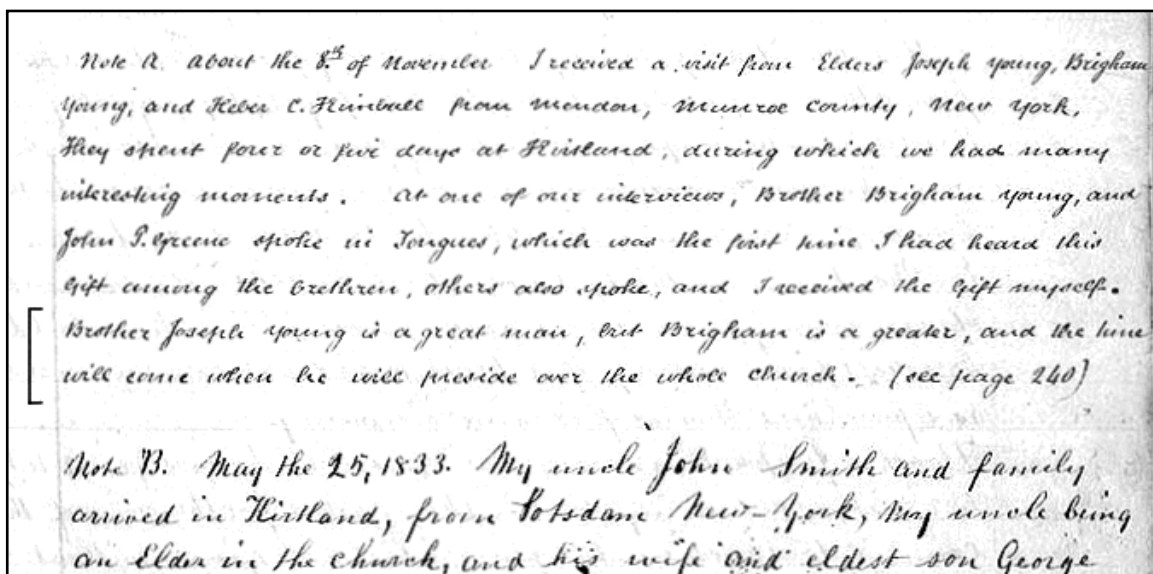 Note A. About the 8.th of November I received a visit from Elders Joseph Young, Brigham
Young, and Heber C. Kimball from Mendon, Munroe County, New York.
They spent four or five days at Kirtland, during which we had many
interesting moments. At one of our interviews, Brother Brigham Young, and
John P. Greene spoke in Tongues, which was the first time I had heard this
gift among the brethren, others also spoke, and I received the gift myself.
Brother Joseph Young is a great man, but Brigham is a greater, and the time
will come when he will preside over the whole church. (see page 240)
Note B. May the 25, 1833. My uncle John Smith and family
arrived in Kirtland, from Potsdam New-York, My uncle being
an Elder in the church, and his wife and eldest son George